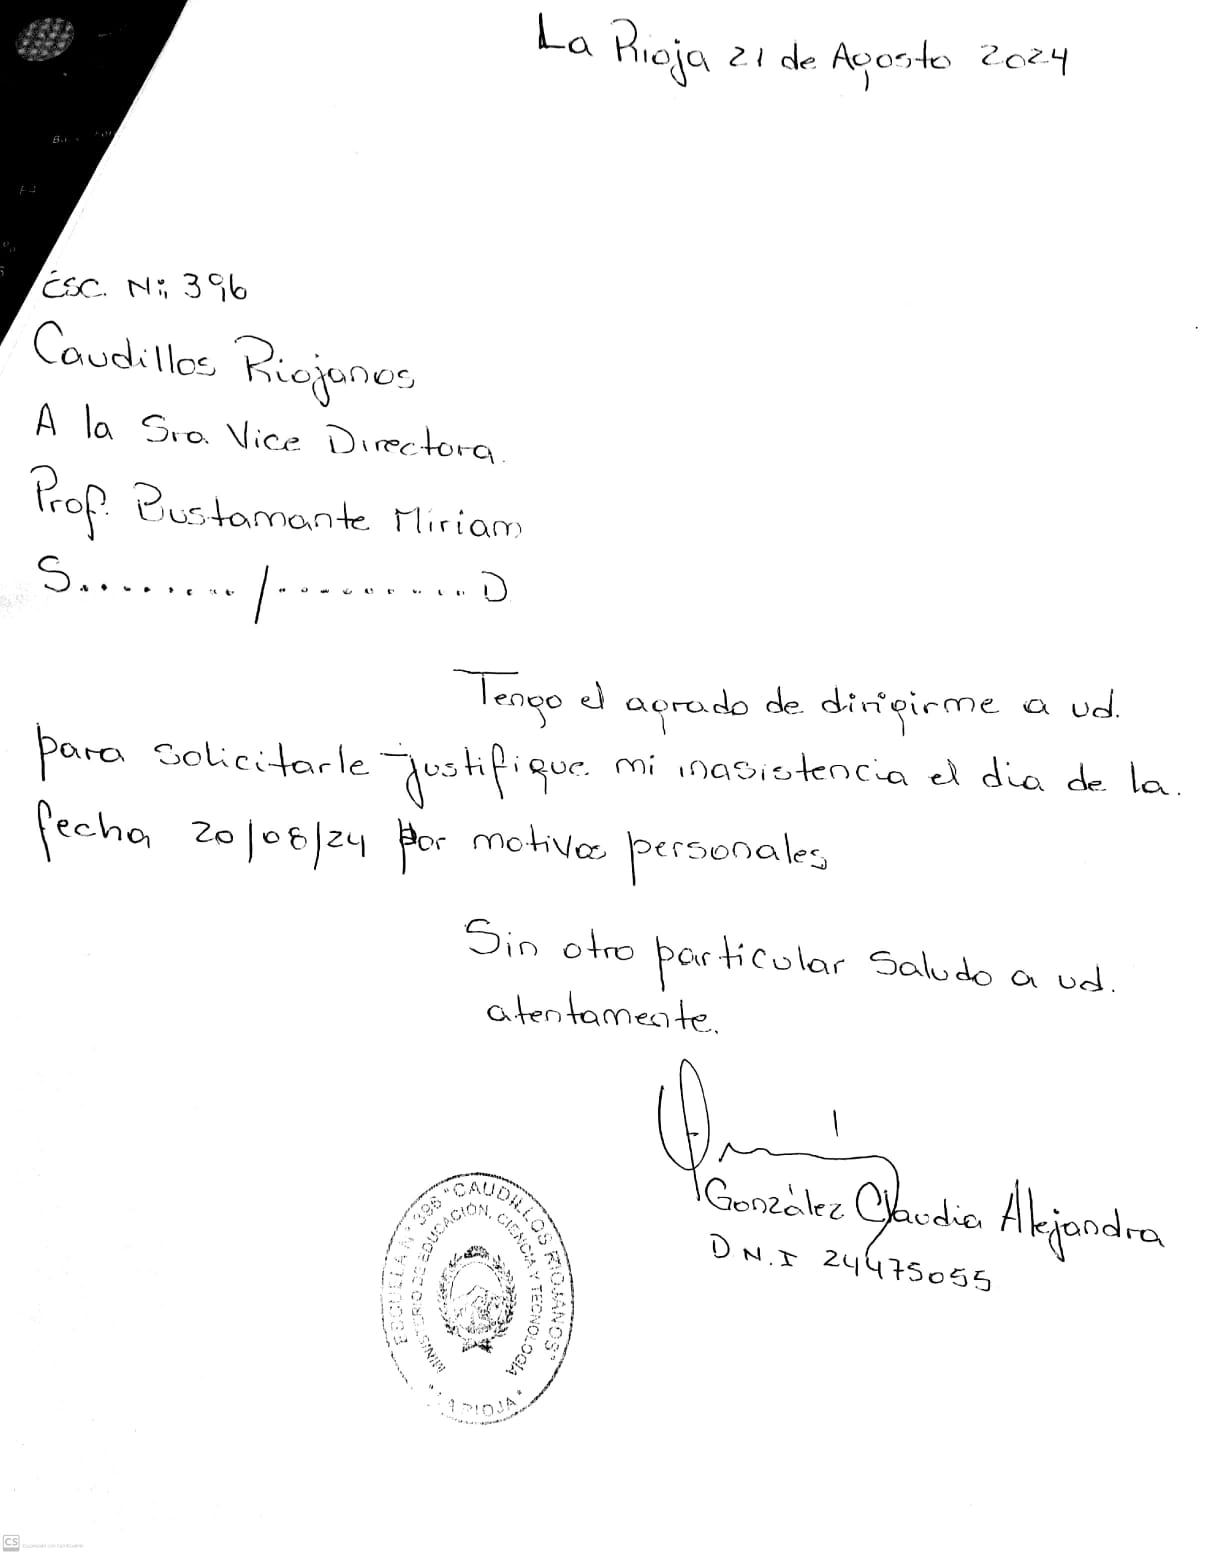 La Rioja 21 de Agosto 2024
Esc. Nº 396
Caudillos Riojanos
A la Sra. Vice Directora.
Prof. Bustamante Miriam
S......../..........D
Tengo el agrado de dirigirme a ud.
para solicitarle justifique mi inasistencia el dia de la.
fecha 20/08/24 por motivos personales
Sin otro particular Saludo a ud.
atentamente.
González Claudia Alejandra
D N.I 24475055
ESCUELA N° 396 "CAUDILLOS RIOJANOS"
MINISTERIO DE EDUCACIÓN, CIENCIA Y TECNOLOGÍA
LA RIOJA
CS